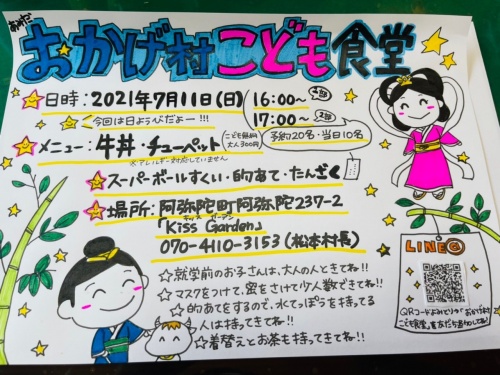 あみだ
おかげ村こども食堂
日時：2021年7月11日(日) 16:00〜 1部
17:00〜 2部
今回は日ようびだよー!!!
予約20名・当日10名
メニュー：牛丼・チューペット
こども無料
大人300円
※アレルギー対応していません
スーパーボールすくい・的あて・たんざく
場所：阿弥陀町阿弥陀237-2
キッズ ガーデン
「Kiss Garden」
070-4110-3153(松本村長)
☆就学前のお子さんは、大人の人ときてね!!
☆マスクをつけて、密をさけて少人数できてね!!
☆的あてをするので、水てっぽうを持ってる
人は持ってきてね!!
☆着替えとお茶も持ってきてね!!
LINE@
QRコードよみとりつ「おかげ村
こども食堂」を友だち追加してね!